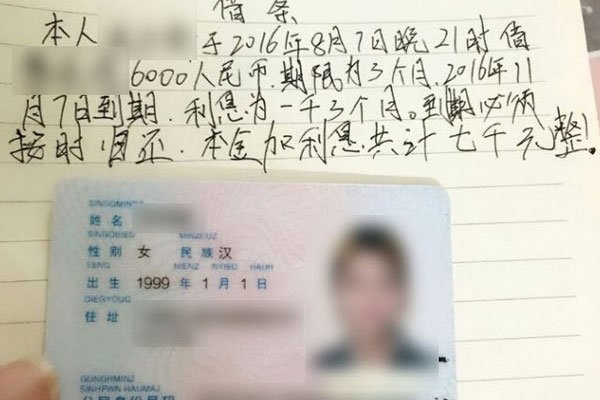 借条
本人 于2016年8月7日晚21时借
6000人民币.期限为3个月.2016年11
月7日到期.利息为一千3个月。到期必须
按时归还.本金加利息共计七千元整.
SINGQMINGZ
姓名
SINGQBIED MINZCUZ
性别 女 民族 汉
SENG NIENZ NYIED HAUH
出生 1999 年 1 月 1 日
DIEGYOUQ
住址
GUNGHMINZ
SINHFWN HAUMAJ
公民身份号码